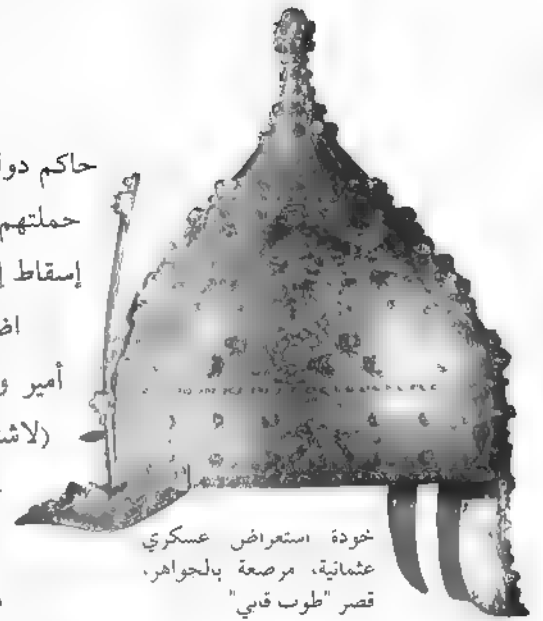 حاكم
حملتهم
إسقاط
أمير
خودة استعراض عسكري
عثمانية، مرصعة بالجواهر،
قصر "طوب قابي"